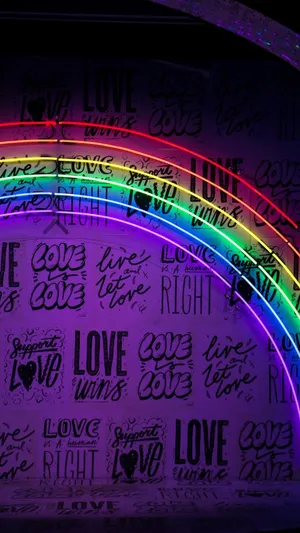 Support
LOVE
LOVE
wins
LOVE
LOVE
live
and
LOVE
RIGHT
Support
LOVE
LOVE
wins
LOVE
LOVE
LOVE
is
LOVE
live
and
let
love
LOVE
IS A human
RIGHT
Support
LOVE
Support
LOVE
LOVE
wins
LOVE
is
LOVE
live
and
let
love
RIGHT
live
LOVE
IS A human
RIGHT
Support
LOVE
LOVE
wins
LOVE
is
LOVE
LOVE